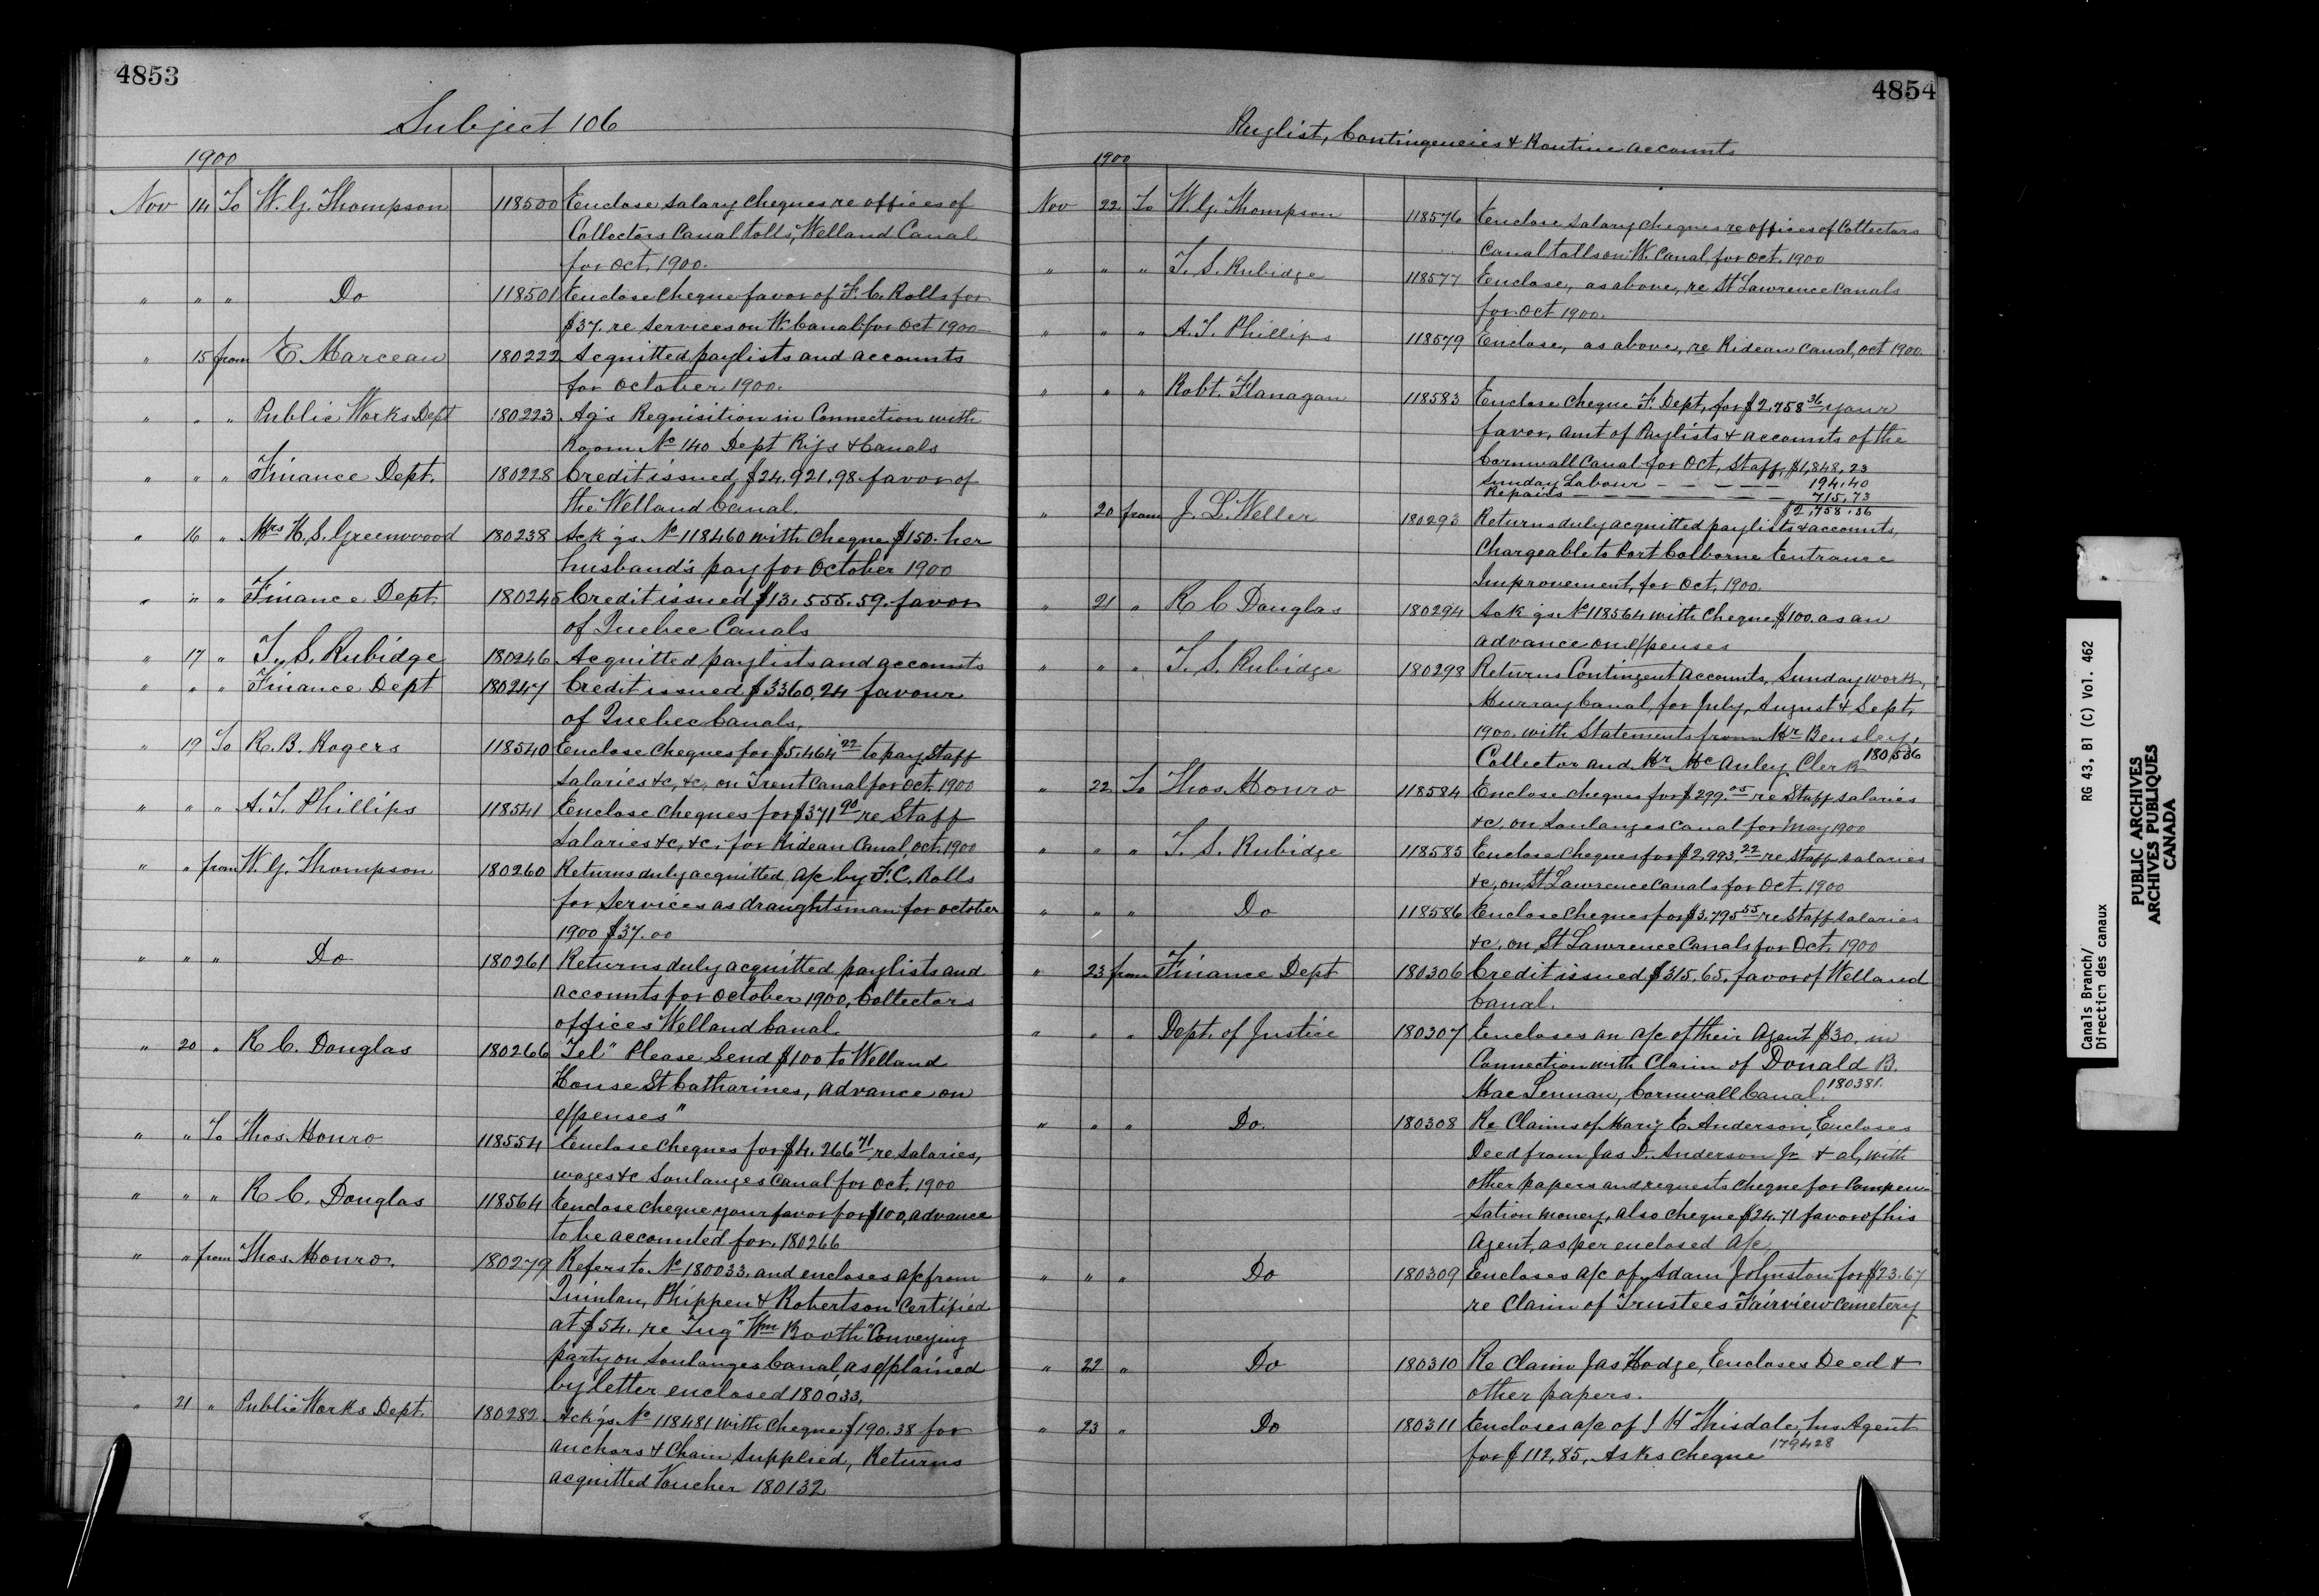 4853
Subject 106
1900
Nov 14 To W. G. Thompson 118500 Enclose salary cheques re offices of
Collectors Canal tolls, Welland Canal
for Oct. 1900.
" " " Do 118501 Enclose cheque favor of F. C. Rolls for
$37. re services on W. Canal for Oct 1900
" 15 from E. Marceau 180222 Acquitted paylists and accounts
for October 1900.
" " " Public Works Dept 180223 Ag's Requisition in Connection with
Room No 140 Dept Rys & Canals
" " " Finance Dept. 180228 Credit issued $24,921.98 favor of
the Welland Canal.
" 16 " Mrs H. S. Greenwood 180238 Ack'gs No 118460 with cheque $150. her
husband's pay for October 1900
" " " Finance Dept. 180245 Credit issued $13,555.59. favor
of Quebec Canals
" 17 " T. S. Rubidge 180246 Acquitted paylists and accounts
" " " Finance Dept 180247 Credit issued $3360.24 favour
of Quebec Canals.
" 19 To R. B. Rogers 118540 Enclose cheques for $5,464 22 to pay Staff
Salaries &c, &c, on Trent Canal for Oct. 1900
" " " A. T. Phillips 118541 Enclose cheques for $371 90 re Staff
Salaries &c, &c. for Rideau Canal Oct. 1900
" " from W. G. Thompson 180260 Returns duly acquitted a/c by F. C. Rolls
for services as draughtsman for october
1900 $37.00
" " " Do 180261 Returns duly acquitted paylists and
accounts for October 1900, Collectors
offices Welland Canal.
" 20 " R C. Douglas 180266 "Tel" Please send $100 to Welland
House St Catharines, advance on
expenses"
" " To Thos. Monro 118554 Enclose cheques for $4,266 71 re salaries,
wages &c Soulanges Canal for Oct. 1900
" " " R C. Douglas 118564 Enclose cheque your favor for $100, advance
to be accounted for. 180266
" " from Thos. Monro. 180279 Refers to No 180033. and encloses a/c from
Quinlan, Phippen & Robertson Certified
at $54. re Tug "Wm Booth" Conveying
party on Soulanges Canal, as explained
by letter enclosed 180033.
" 21 " Public Works Dept. 180282 Ack'gs No 118481 with cheque $190.38 for
anchors & Chain supplied, Returns
acquitted Voucher 180132
4854
Paylist, Contingencies & Routine accounts
1900
Nov 22 To W. G. Thompson 118576 Enclose salary cheques re offices of Collectors
Canal tolls on W. Canal for Oct. 1900
" " " T. S. Rubidge 118577 Enclose, as above, re St Lawrence Canals
for Oct 1900.
" " " A. T. Phillips 118579 Enclose, as above, re Rideau Canal, Oct 1900
" " " Robt. Flanagan 118583 Enclose cheque F. Dept, for $2,758 36 your
favor, amt of Paylists & accounts of the
Cornwall Canal for Oct, Staff $1,848.23
Sunday Labour – – – – 194.40
Repairs – – – – – – 715.73
$2,758.36
" 20 from J. L. Weller 180293 Returns duly acquitted paylists & accounts,
Chargeable to Port Colborne Entrance
Improvement, for Oct, 1900.
" 21 " R C Douglas 180294 Ack'gs No 118564 with cheque $100. as an
advance on expenses
" " " T. S. Rubidge 180298 Returns Contingent Accounts, Sunday work,
Murray Canal, for July, August & Sept,
1900. with Statements from Mr Bensley,
Collector and Mr McAuley Clerk 180536
" 22 To Thos. Monro 118584 Enclose cheques for $299.05 re Staff salaries
&c. on Soulanges Canal for May 1900
" " " T. S. Rubidge 118585 Enclose cheques for $2,993.22 re Staff salaries
&c, on St Lawrence Canals for Oct. 1900
" " " Do 118586 Enclose cheques for $3,795 55 re Staff salaries
&c. on St Lawrence Canals for Oct. 1900
" 23 from Finance Dept 180306 Credit issued $315.65. favor of Welland
Canal.
" " " Dept. of Justice 180307 Encloses an a/c of their Agent $30. in
Connection with Claim of Donald B.
MacLennan, Cornwall Canal. 180381.
" " " Do. 180308 Re Claims of Mary E. Anderson, Encloses
Deed from Jas D. Anderson Jr & al, with
other papers and requests cheque for Compen
-sation money, also cheque $24.71 favor of his
Agent, as per enclosed a/c
" " " Do 180309 Encloses a/c of Adam Johnston for $23.67
re Claim of Trustees Fairview Cemetery
" 22 " Do 180310 Re Claim Jas Hodge, Encloses Deed &
other papers.
" 23 " Do 180311 Encloses a/c of J H Thisdale, his Agent
for $112.85, Asks cheque 179428
Canals Branch/ RG 43, B1 (C) Vol. 462
Direction des canaux
PUBLIC ARCHIVES
ARCHIVES PUBLIQUES
CANADA